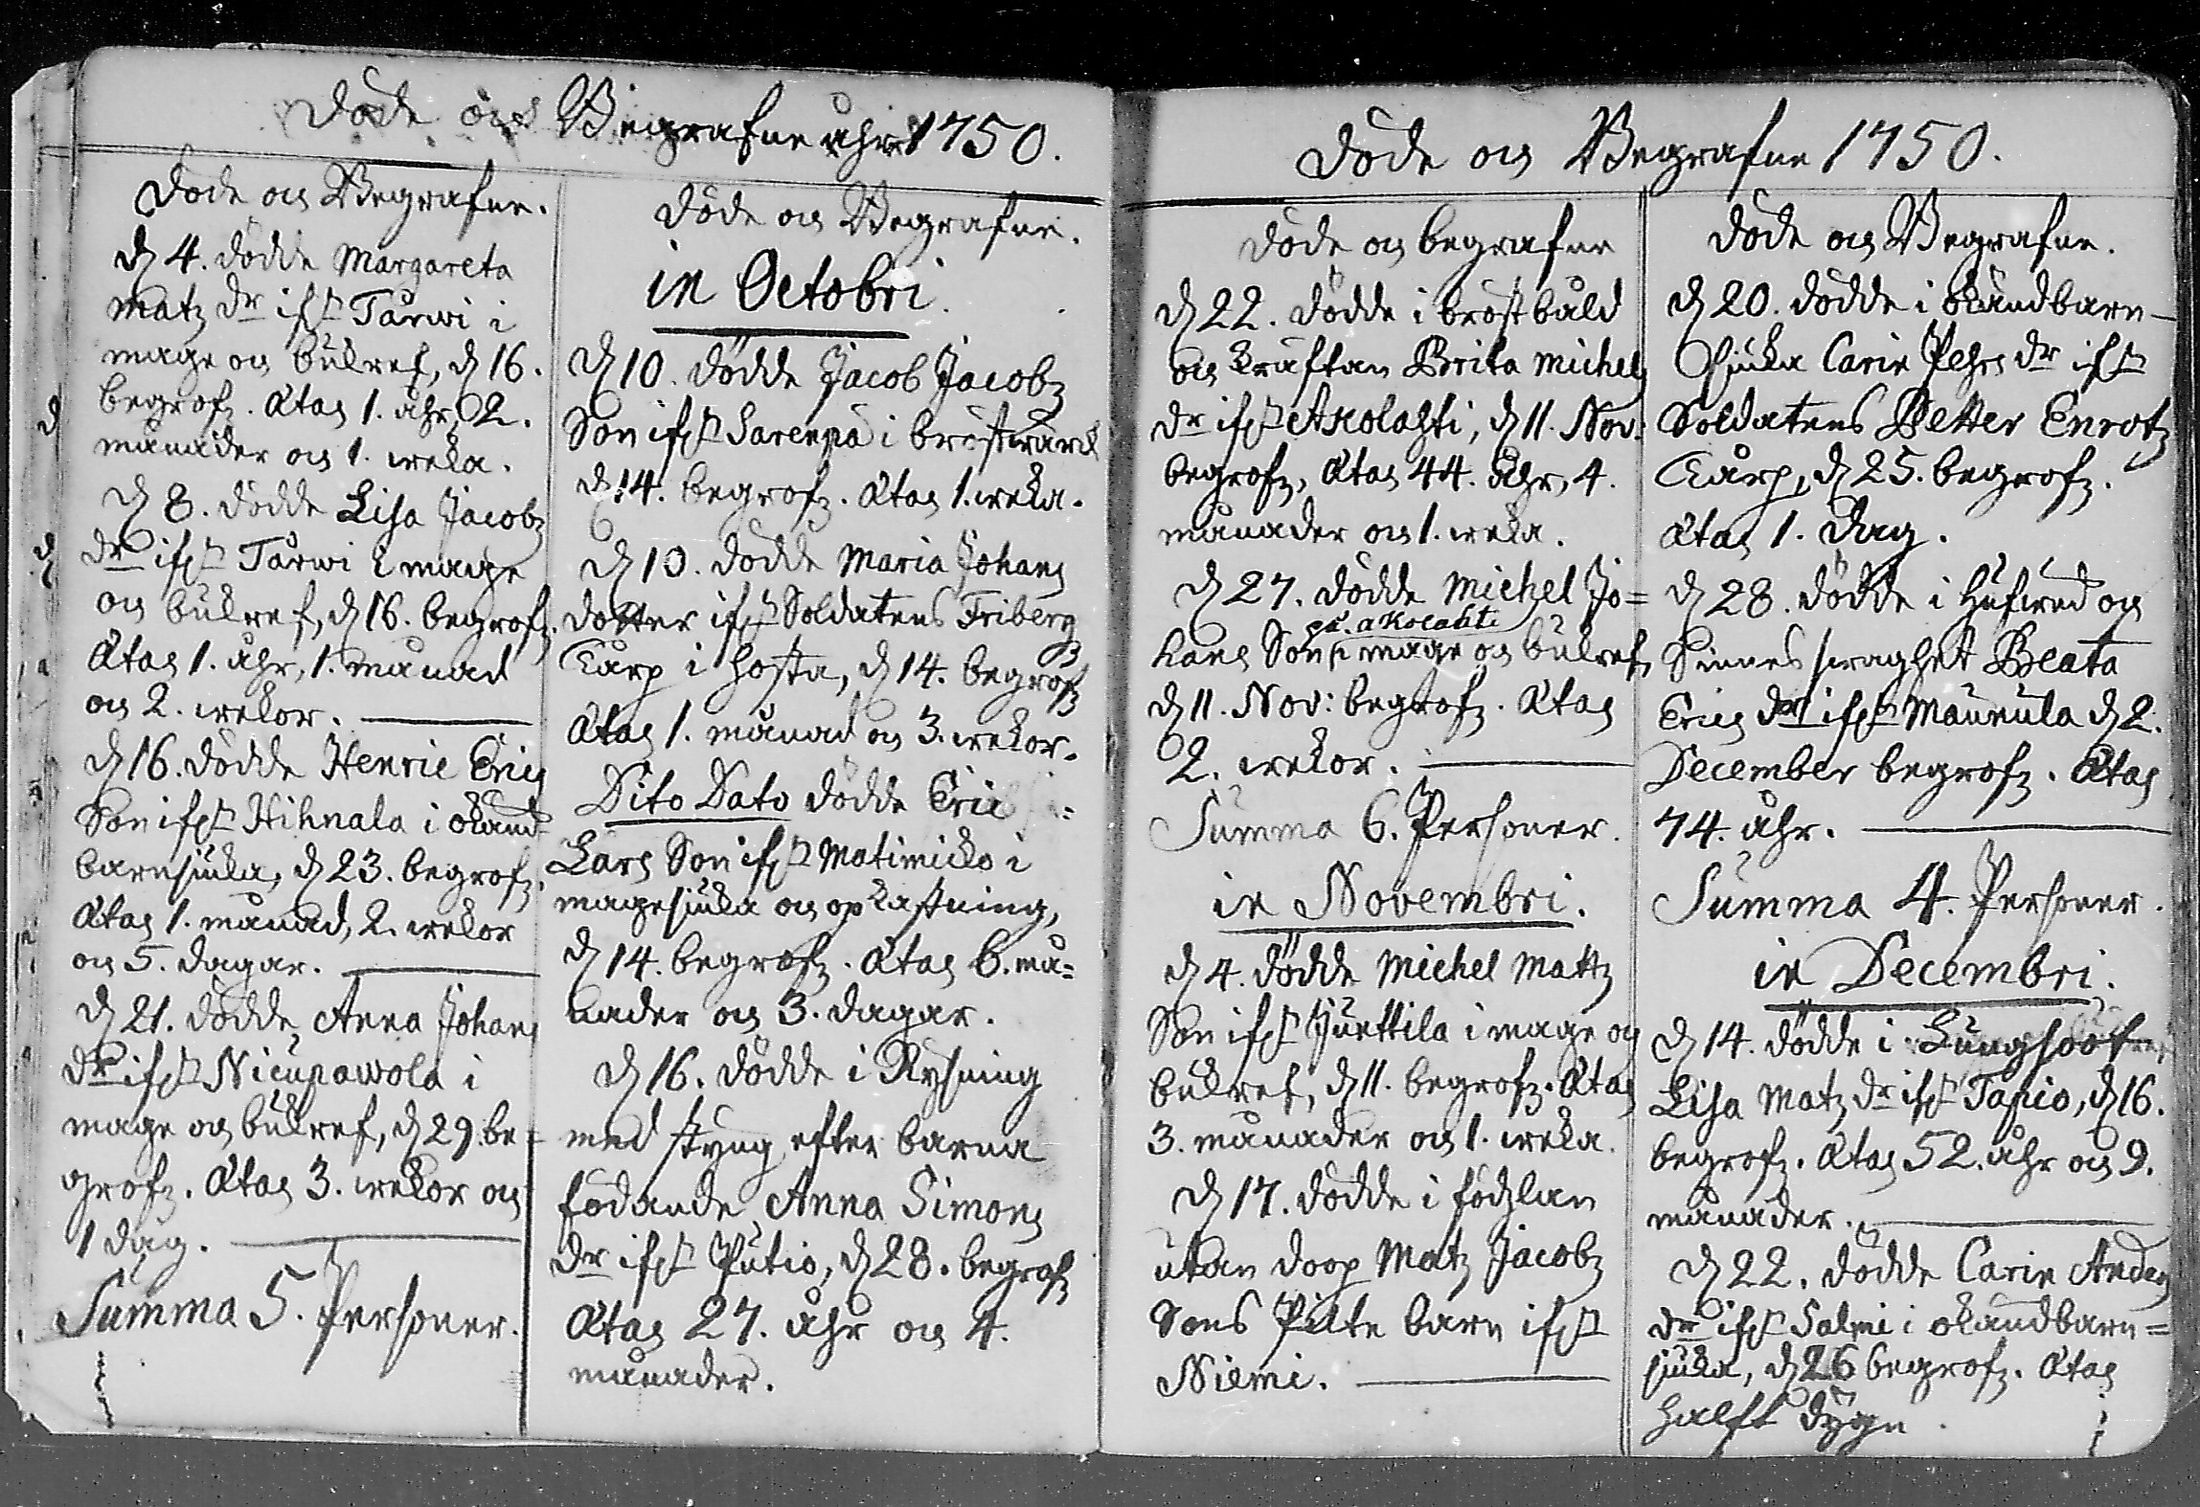 Döde och Begrafne åhr 1750.
Döde och Begrafne.
d 4. dödde Margareta
Matz dr ifr Tårwi i
mage och bukref, d 16.
begrofz. Ætas 1. åhr, 2.
månader och 1. weka.
d 8. dödde Lisa Jacobz
dr ifr Tårwi i mage
och bukref, d 16. begrofz.
Ætas 1. åhr, 1. månad
och 2. wekor.
d 16. dödde Henric Erics
Son ifr Hihnala i okänd
barnsiuka, d 23. begrofz.
Ætas 1. månad, 2. wekor
och 5. dagar.
d 21. dödde Anna Johans
dr ifr Nicupawola i
mage och bukref, d 29. be=
grofz. Ætas 3. wekor och
1 dag.
Summa 5. Personer.
Döde och Begrafne.
in Octobri.
d 10. dödde Jacob Jacobz
Son ifr Sarenpä i bröstwärck
d 14. begrofz. Ætas 1. weka.
d 10. dödde Maria Johans
dotter ifr Soldatens Friberg
Tårp i hosta, d 14. begrofz
Ætas 1. månad och 3. wekor.
Dito Dato dödde Eric
Lars Son ifr Matimicko i
magesiuka och opkastning,
d 14. begrofz. Ætas 6. må=
nader och 3. dagar.
d 16. dödde i Rysning
med styng efter barna
födande Anna Simons
dr ifr Putio, d 28. begrofz
Ætas 27. åhr och 4.
månader.
Döde och Begrafne 1750.
Döde och begrafne
d 22. dödde i bröstbåld
och kräftan Brita Michels
dr ifr Akolahti, d 11. Nov:
begrofz, Ætas 44. åhr, 4.
månader och 1. weka.
d 27. dödde Michel Jo=
på Akolahti
hans Son i mage och bukref,
d 11. Nov: begrofz. Ætas
2. wekor.
Summa 6. Personer.
in Novembri.
d 4. dödde Michel Mattz
Son ifr Juettila i mage och
bukref, d 11. begrofz. Ætas
3. månader och 1. weka.
d 17. dödde i födzlan
utan doop Matz Jacobz
Sons Pilte barn ifr
Niemi.
Döde och Begrafne.
d 20. dödde i okändbarn-
siuka Carin Pehrs dr ifr
Soldatens Petter Enrotz
Tårp, d 25. begrofz.
Ætas 1. dag.
d 28. dödde i Hufwud och
Sinnes swaghet Beata
Erics dr ifr Maunula d 2.
December begrofz. Ætas
74. åhr.
Summa 4. Personer.
in Decembri.
d 14. dödde i Lungsoot
Lisa Matz dr ifr Tapio, d 16.
begrofz. Ætas 52. åhr och 9.
månader.
d 22. dödde Carin Anders
dr ifr Salmi i okändbarn=
siuka, d 26 begrofz. Ætas
halft dygn.